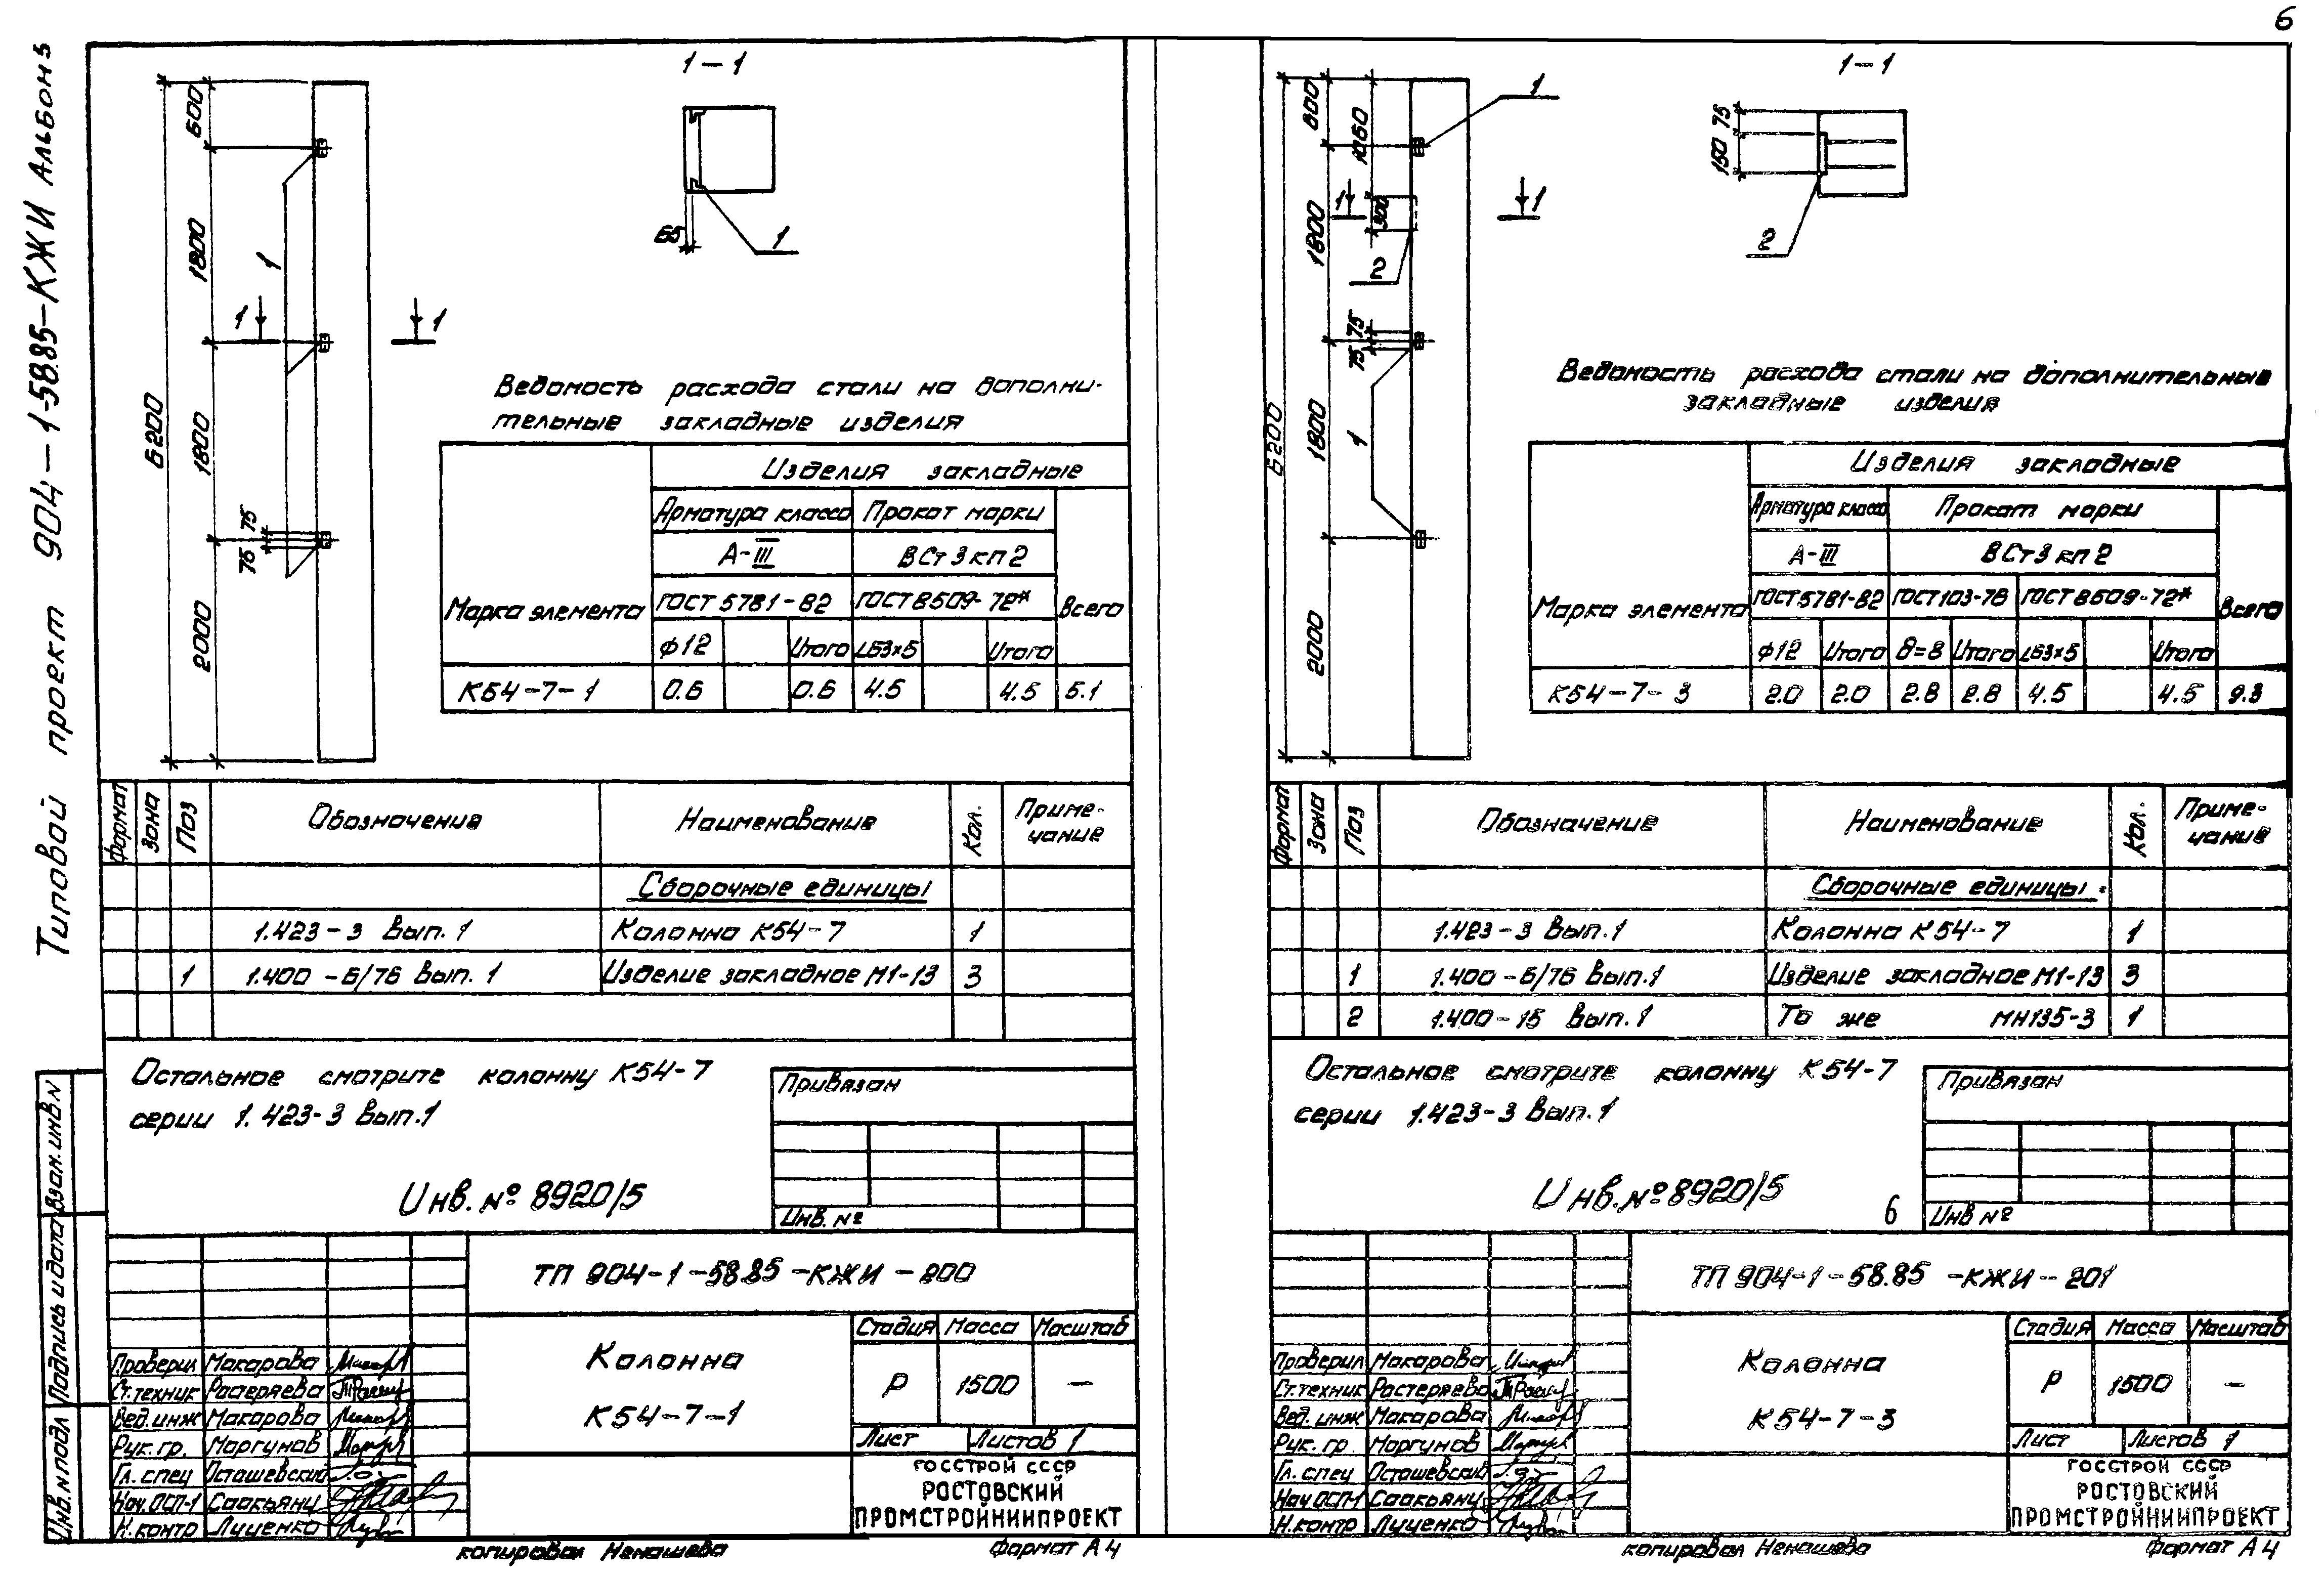 6
Типовой проект 904-1-58.85-КЖИ Альбом 5
1-1
600
1800
1800
2000
6200
75
75
1
1
1
65
1
Ведомость расхода стали на дополни-
тельные закладные изделия
Марка элемента
Изделия закладные
Арматура класса
Прокат марки
А-III
ВСт3кп2
ГОСТ 5781-82
ГОСТ 8509-72*
Всего
ф12
Итого
∟63×5
Итого
К54-7-1
0.6
0.6
4.5
4.5
5.1
Формат
Зона
Поз
Обозначение
Наименование
Кол.
Приме-
чание
Сборочные единицы
1.423-3 Вып.1
Колонна К54-7
1
1
1.400-6/76 Вып.1
Изделие закладное М1-13
3
Остальное смотрите колонну К54-7
серии 1.423-3 Вып.1
Инв.№ 8920/5
Привязан
Инв. №
ТП 904-1-58.85-КЖИ-200
Колонна
К54-7-1
Стадия
Масса
Масштаб
Р
1500
—
Лист
Листов 1
ГОССТРОЙ СССР
РОСТОВСКИЙ
ПРОМСТРОЙНИИПРОЕКТ
Проверил Макарова
Ст.техник Растеряева
Вед.инж Макарова
Рук.гр. Моргунов
Гл.спец Осташевский
Нач.ОСП-1 Саакьянц
Н.контр Луценко
Взам.инв N
Подпись и дата
Инв.N подл
копировал Ненашева
формат А4
1-1
600
1060
300
1800
1800
2000
6200
75
75
1
1
1
1
2
75
150
2
Ведомость расхода стали на дополнительные
закладные изделия
Марка элемента
Изделия закладные
Арматура класса
Прокат марки
А-III
ВСт3кп2
ГОСТ 5781-82
ГОСТ 103-76
ГОСТ 8509-72*
Всего
ф12
Итого
δ=8
Итого
∟63×5
Итого
К54-7-3
2.0
2.0
2.8
2.8
4.5
4.5
9.3
Формат
Зона
Поз
Обозначение
Наименование
Кол.
Приме-
чание
Сборочные единицы
1.423-3 Вып.1
Колонна К54-7
1
1
1.400-6/76 Вып.1
Изделие закладное М1-13
3
2
1.400-15 Вып.1
То же МН135-3
1
Остальное смотрите колонну К54-7
серии 1.423-3 Вып.1
Инв.№ 8920/5
6
Привязан
Инв №
ТП 904-1-58.85-КЖИ-201
Колонна
К54-7-3
Стадия
Масса
Масштаб
Р
1500
—
Лист
Листов 1
ГОССТРОЙ СССР
РОСТОВСКИЙ
ПРОМСТРОЙНИИПРОЕКТ
Проверил Макарова
Ст.техник Растеряева
Вед.инж Макарова
Рук.гр. Моргунов
Гл.спец Осташевский
Нач.ОСП-1 Саакьянц
Н.контр Луценко
копировал Ненашева
формат А4